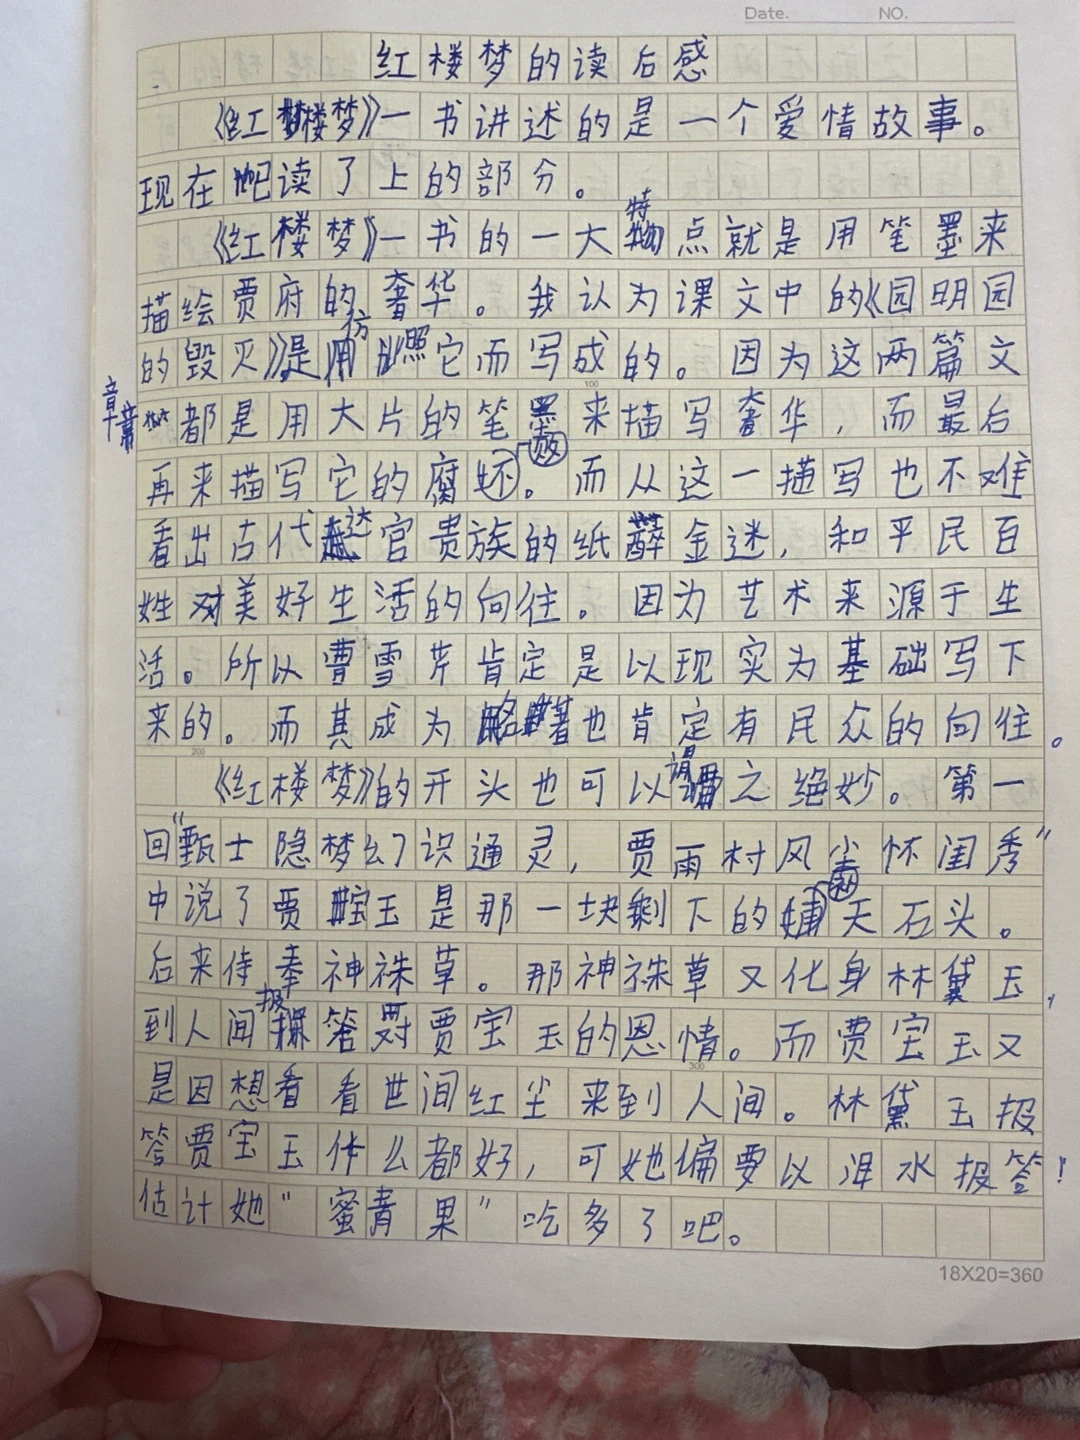 Date. NO.
红楼梦的读后感
《红楼梦》一书讲述的是一个爱情故事。
现在吧读了上的部分。
《红楼梦》一书的一大特点就是用笔墨来
描绘贾府的奢华。我认为课文中的《园明园
的毁灭》是仿照它而写成的。因为这两篇文
章都是用大片的笔墨来描写奢华,而最后
再来描写它的腐败。而从这一描写也不难
看出古代达官贵族的纸醉金迷,和平民百
姓对美好生活的向往。因为艺术来源于生
活。所以曹雪芹肯定是以现实为基础写下
来的。而其成为名著也肯定有民众的向往。
《红楼梦》的开头也可以谓之绝妙。第一
回“甄士隐梦幻识通灵,贾雨村风尘怀闺秀”
中说了贾宝玉是那一块剩下的补天石头。
后来侍奉神祩草。那神祩草又化身林黛玉,
到人间报答对贾宝玉的恩情。而贾宝玉又
是因想看看世间红尘来到人间。林黛玉报
答贾宝玉什么都好,可她偏要以泪水报答!
估计她“蜜青果”吃多了吧。
18X20=360
100
200
300